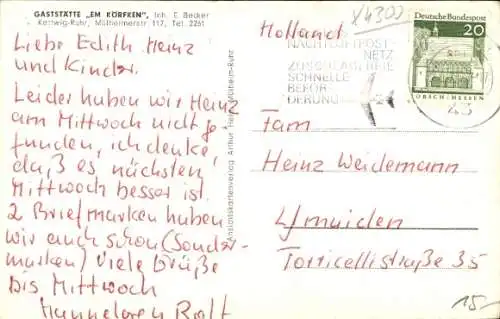 GASTSTÄTTE „EM KÖRFKEN", Inh. E. Becker
Kettwig-Ruhr, Mülheimerstr. 117, Tel. 2261
Liebe Edith Heinz
und Kinder.
Leider haben wir Heinz
am Mittwoch nicht ge-
funden, ich denke
daß es nächsten
Mittwoch besser ist.
2 Briefmarken haben
wir auch schon (Sonder-
marken) Viele Grüße
bis Mittwoch
Hannelore Rolf
Ansichtskartenverlag Arthur Mülheim-Ruhr
Holland
X4300
NACHTLUFTPOST-
NETZ
ZUSCHLAGFREIE
SCHNELLE
BEFÖR-
DERUNG
Deutsche Bundespost
20
LORSCH·HESSEN
43
Fam
Heinz Weidemann
Ijmuiden
Torricellistraße 35
15,-